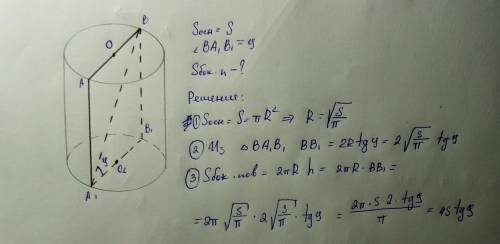 B
O
A
B₁
φ
O₁
A₁
Sосн = S
∠ BA₁B₁ = φ
Sбок. п - ?
Решения:
① Sосн = S = πR² ⇒ R = √(S/π)
② Из △ BA₁B₁ BB₁ = 2R tgφ = 2√(S/π) tgφ
③ Sбок. пов = 2πR · h = 2πR · BB₁ =
= 2π √(S/π) · 2√(S/π) · tgφ = (2π · S · 2 · tgφ)/π = 4S tgφ